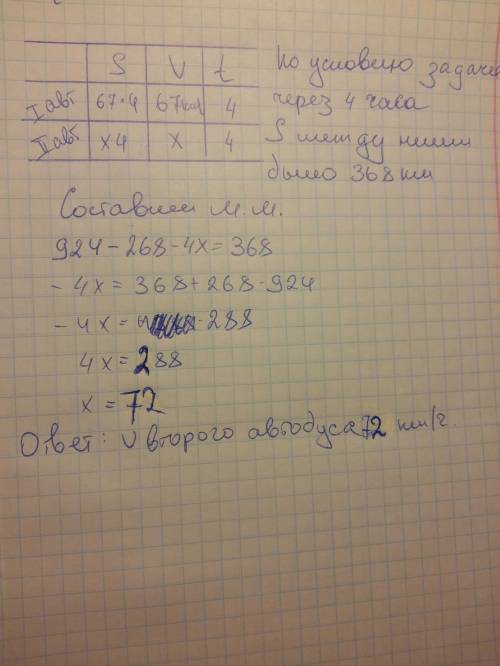 S V t
I авт 67·4 67км 4
II авт х4 х 4
По условию задачи
через 4 часа
S между ними
было 368 км
Составим м.м.
924 - 268 - 4х = 368
- 4х = 368 + 268 - 924
- 4х = - 288
4х = 288
х = 72
Ответ: V второго автобуса 72 км/ч.